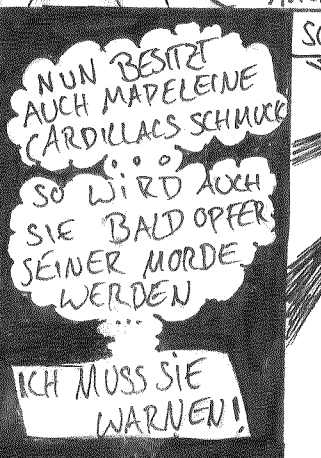 NUN BESITZT
AUCH MADELEINE
CARDILLACS SCHMUCK
...
SO WIRD AUCH
SIE BALD OPFER
SEINER MORDE
WERDEN
...
ICH MUSS SIE
WARNEN!